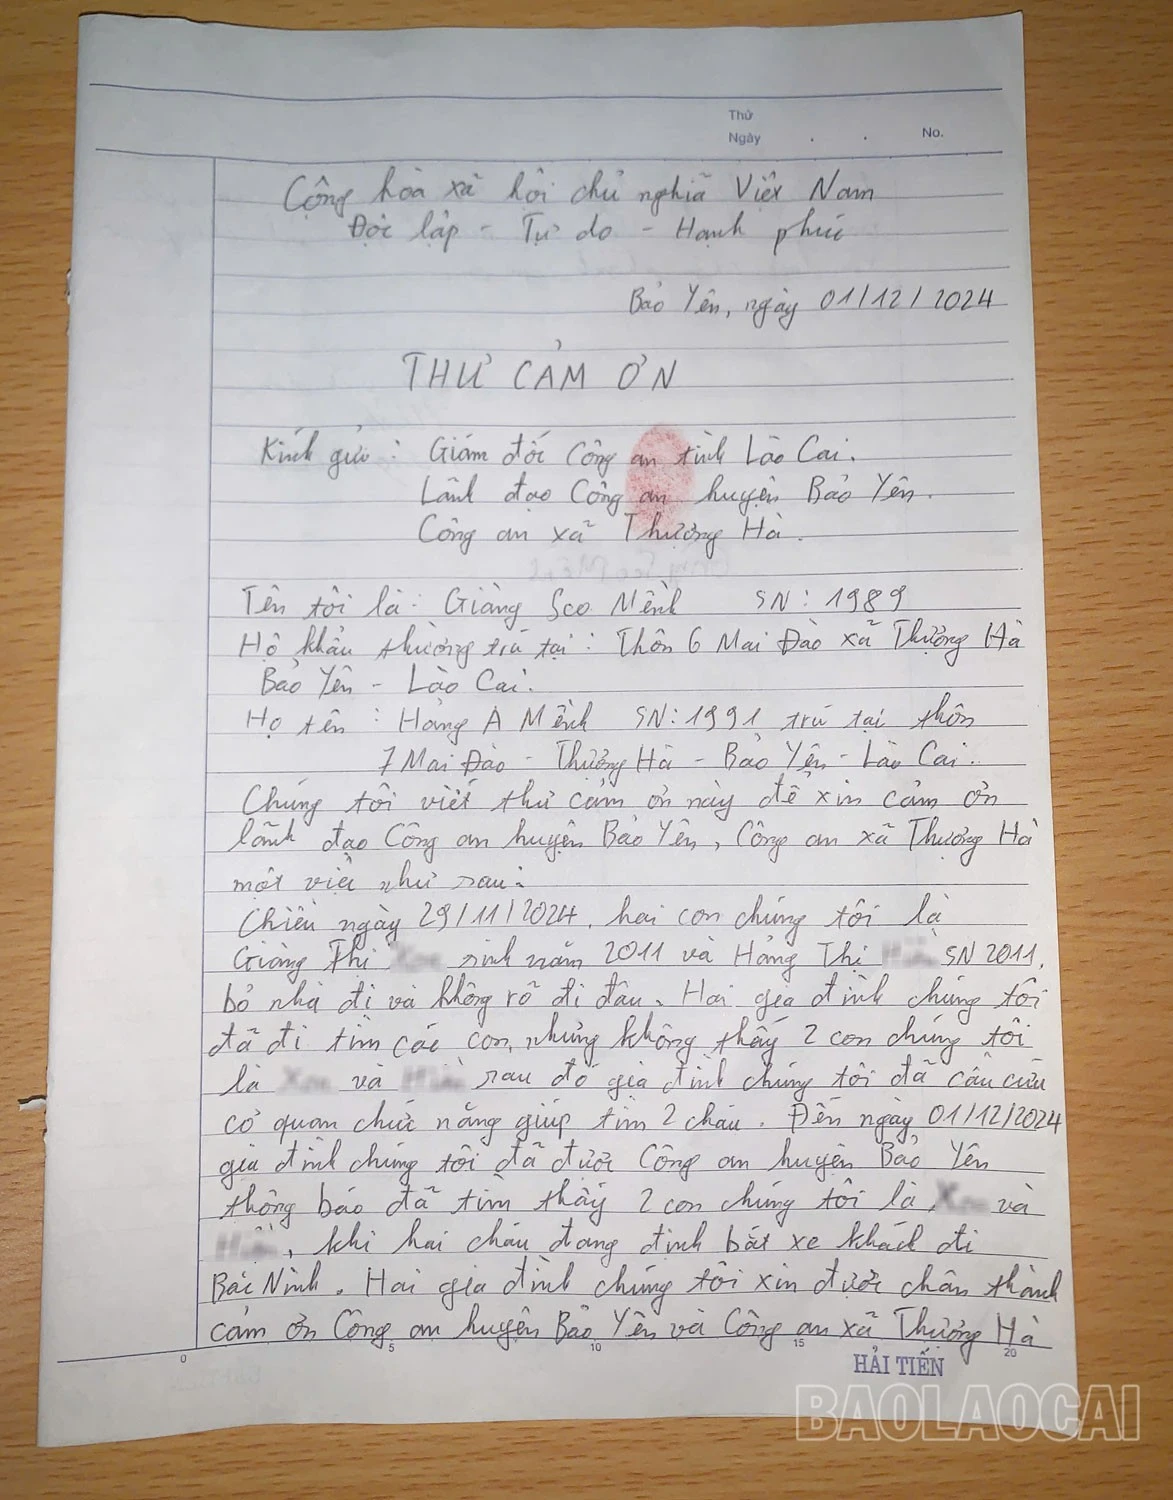 Thứ
Ngày . . No.
Cộng hòa xã hội chủ nghĩa Việt Nam
Độc lập - Tự do - Hạnh phúc
Bảo Yên, ngày 01/12/2024
THƯ CẢM ƠN
Kính gửi : Giám đốc Công an tỉnh Lào Cai.
Lãnh đạo Công an huyện Bảo Yên.
Công an xã Thượng Hà.
Tên tôi là: Giàng Seo Mềnh SN: 1989
Hộ khẩu thường trú tại : Thôn 6 Mai Đào xã Thượng Hà
Bảo Yên - Lào Cai.
Họ tên : Hảng A Mềnh SN: 1991 trú tại thôn
7 Mai Đào - Thượng Hà - Bảo Yên - Lào Cai.
Chúng tôi viết thư cảm ơn này để xin cảm ơn
lãnh đạo Công an huyện Bảo Yên, Công an xã Thượng Hà
một việc như sau:
Chiều ngày 29/11/2024, hai con chúng tôi là
Giàng Thị sinh năm 2011 và Hảng Thị SN 2011,
bỏ nhà đi và không rõ đi đâu. Hai gia đình chúng tôi
đã đi tìm các con, nhưng không thấy 2 con chúng tôi
là và sau đó gia đình chúng tôi đã cầu cứu
cơ quan chức năng giúp tìm 2 cháu. Đến ngày 01/12/2024
gia đình chúng tôi đã được Công an huyện Bảo Yên
thông báo đã tìm thấy 2 con chúng tôi là và
, khi hai cháu đang định bắt xe khách đi
Bắc Ninh. Hai gia đình chúng tôi xin được chân thành
cảm ơn Công an huyện Bảo Yên và Công an xã Thượng Hà
0 5 10 15 20
HẢI TIẾN
BAOLAOCAI